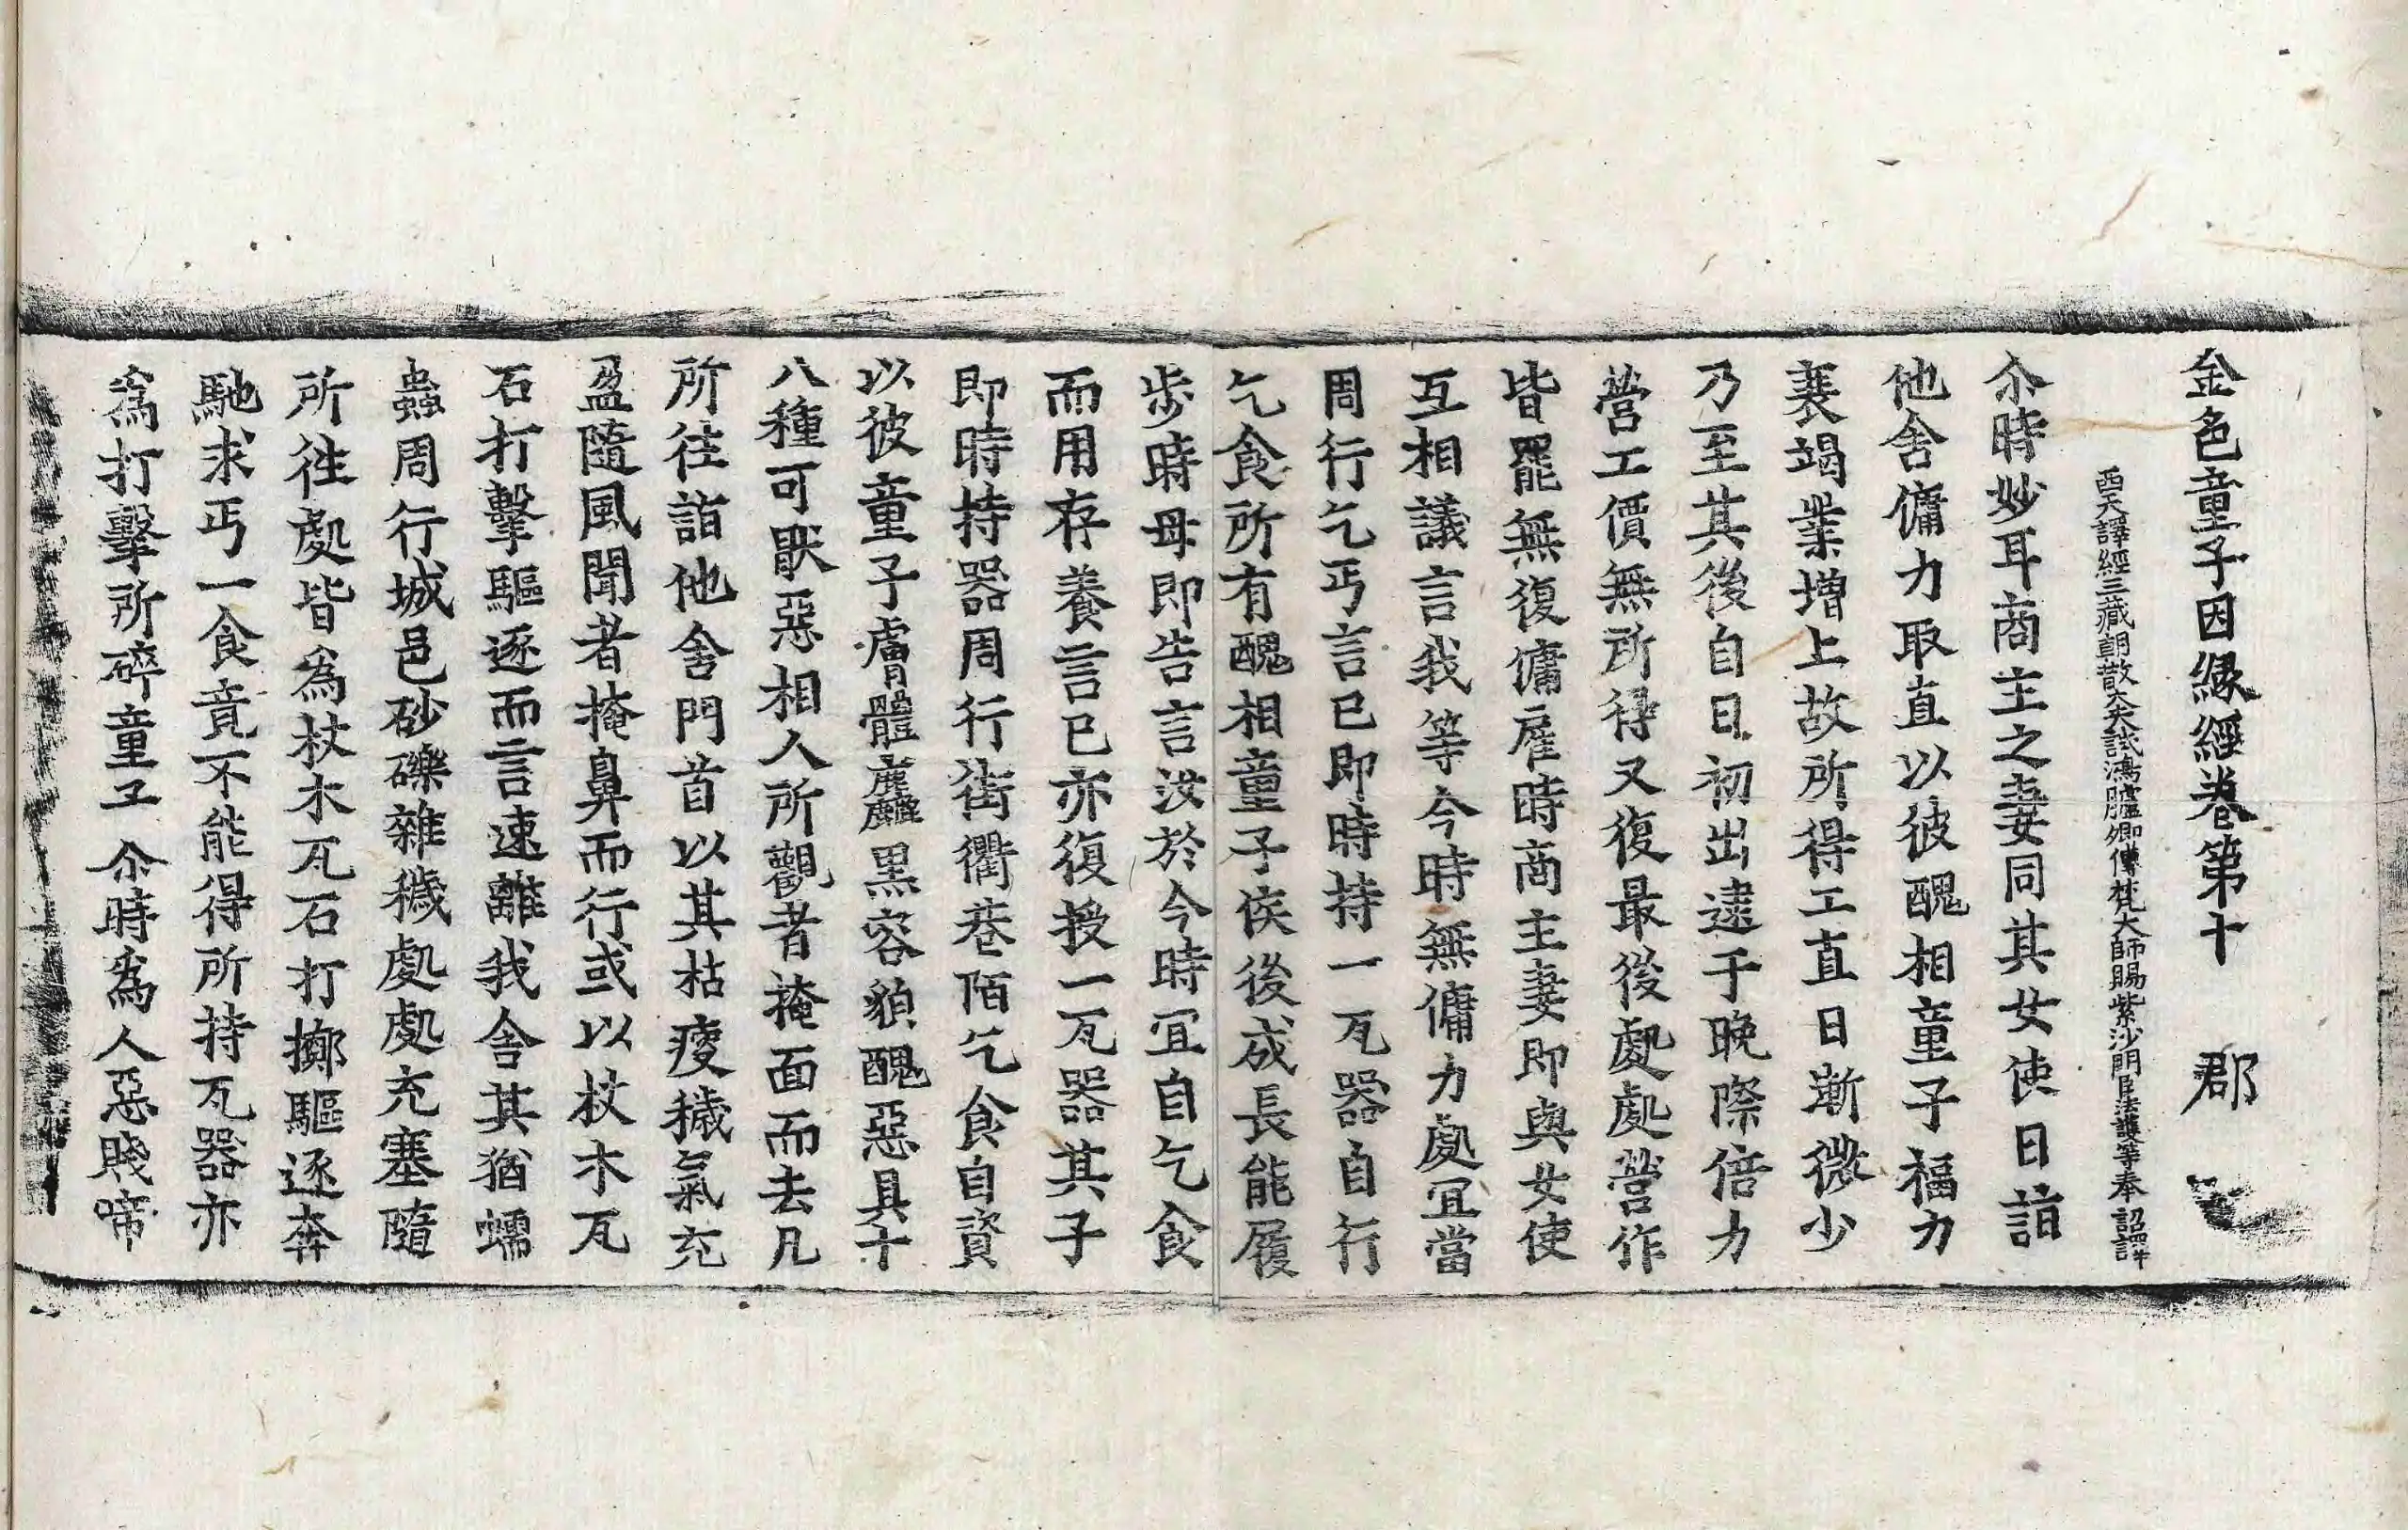 金色童子因緣經卷第十 郡
西天譯經三藏朝散大夫試鴻臚卿傳梵大師賜紫沙門臣法護等奉 詔譯
尒時妙耳商主之妻同其女使日詣
他舍傭力取直以彼醜相童子福力
衰竭業增上故所得工直日漸微少
乃至其後自日初出逮于晚際倍力
營工價無所得又復最後處處營作
皆罷無復傭雇時商主妻即與女使
互相議言我等今時無傭力處宜當
周行乞丐言已即時持一瓦器自行
乞食所有醜相童子俟後成長能履
步時母即告言汝於今時宜自乞食
而用存養言已亦復授一瓦器其子
即時持器周行街衢巷陌乞食自資
以彼童子膚體麤黑容貌醜惡具十
八種可猒惡相人所觀者掩面而去凡
所往詣他舍門首以其枯瘦穢氣充
盈隨風聞者掩鼻而行或以杖木瓦
石打擊驅逐而言速離我舍其猶蠕
蟲周行城邑砂礫雜穢處處充塞隨
所往處皆為杖木瓦石打擲驅逐奔
馳求丐一食竟不能得所持瓦器亦
為打擊所碎童子尒時為人惡賤啼